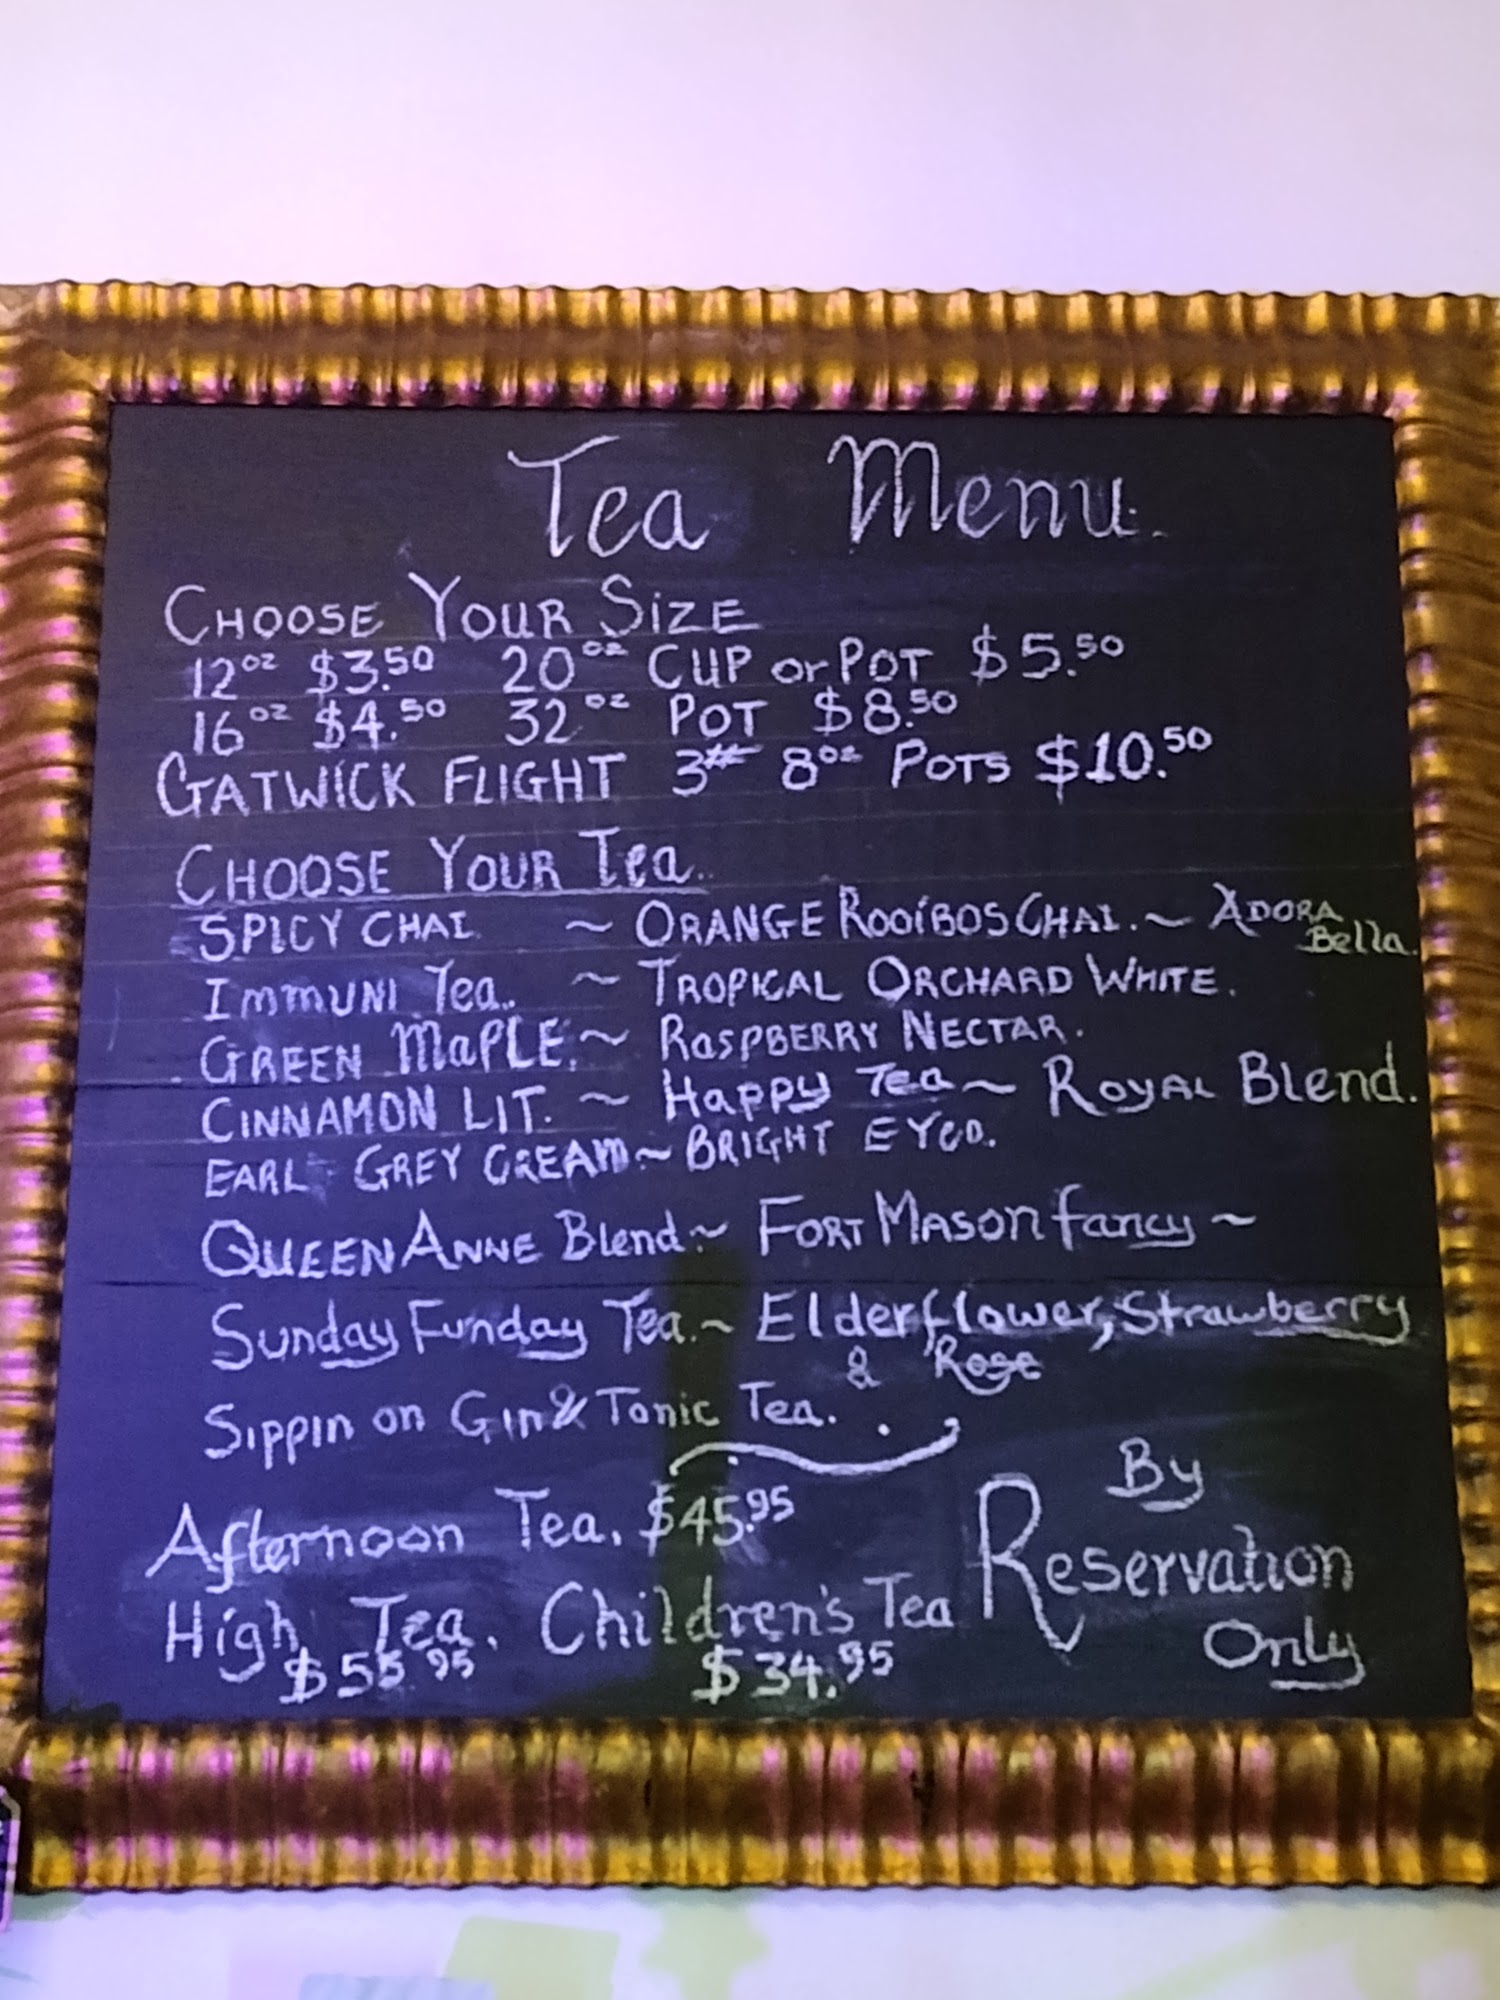 Tea Menu.
CHOOSE YOUR SIZE
12oz $3.50 20oz CUP or POT $5.50
16oz $4.50 32oz POT $8.50
GATWICK FLIGHT 3# 8oz POTS $10.50
CHOOSE YOUR Tea..
SPICY CHAI ~ ORANGE ROOIBOS CHAI. ~ ADORA
Bella.
IMMUNI Tea.. ~ TROPICAL ORCHARD WHITE.
GREEN MAPLE. ~ RASPBERRY NECTAR.
CINNAMON LIT. ~ Happy Tea ~ ROYAL Blend.
EARL GREY CREAM ~ BRIGHT EYED.
QUEEN ANNE Blend ~ FORT MASON fancy ~
Sunday Funday Tea. ~ Elderflower, Strawberry
& Rose
Sippin on Gin & Tonic Tea.
Afternoon Tea. $45.95
High Tea. Children's Tea
$55.95 $34.95
By
Reservation
Only